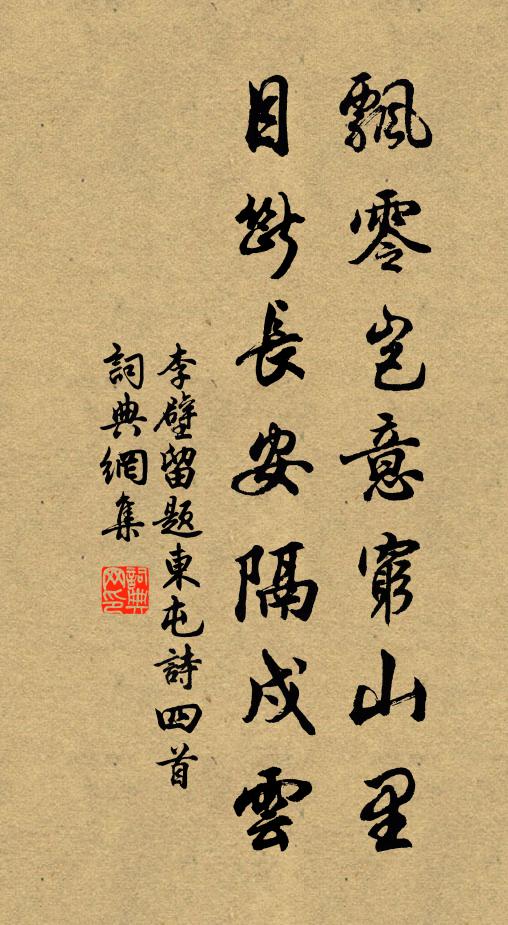 飄零岂意窮山里
目斷長安隔戍雲
李壁留题東屯詩四首
詞典網集
詞典网印